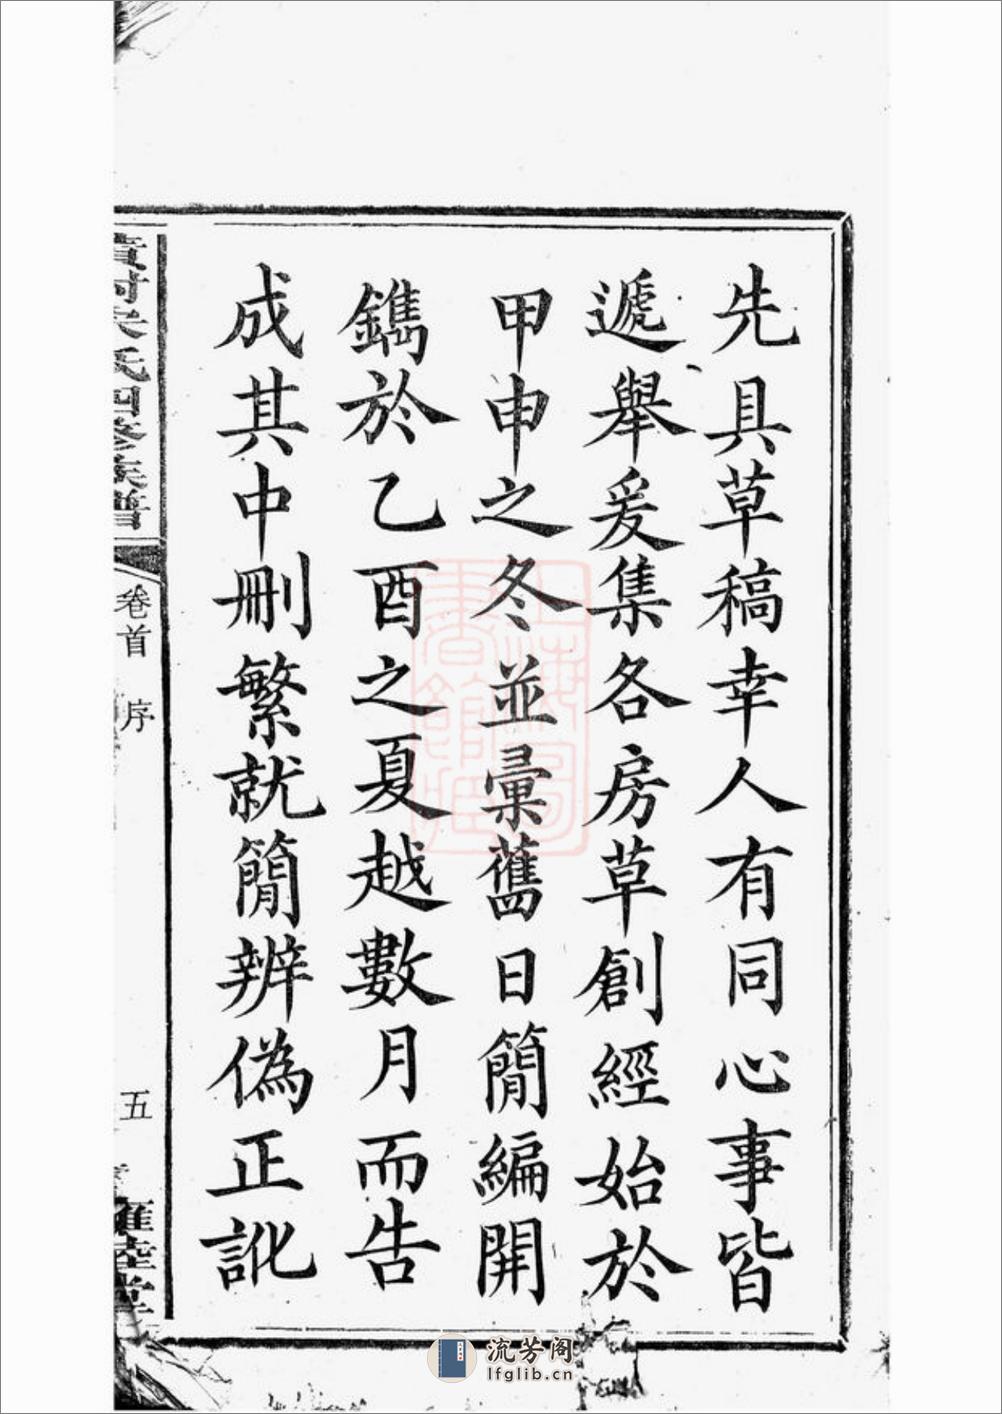 先具草稿幸人有同心事皆
遞舉爰集各房草創經始於
甲申之冬並彙舊日簡編開
鐫於乙酉之夏越數月而告
成其中刪繁就簡辨偽正訛
氏四修族譜
卷首 序
五
睦堂
流芳阁
lfglib.cn